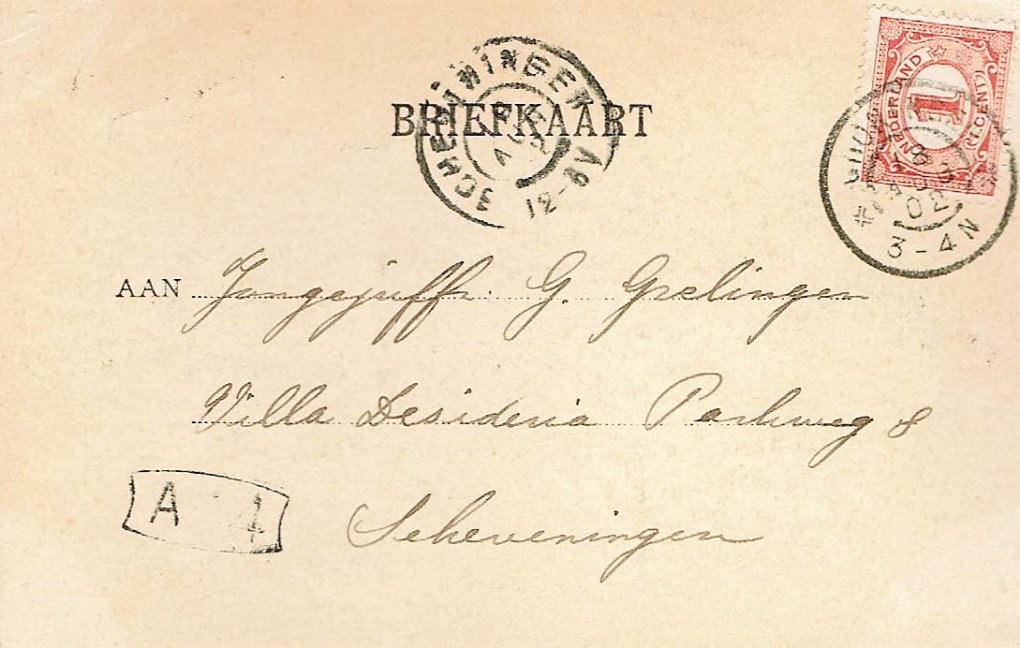 SCHEVENINGEN
AUG
12-6V
BRIEFKAART
NEDERLAND
1
CENT
8
AUG
02
3-4N
AAN Jongejuffr. G. Grelingen
Villa Desideria Parkweg 8
A 4
Scheveningen